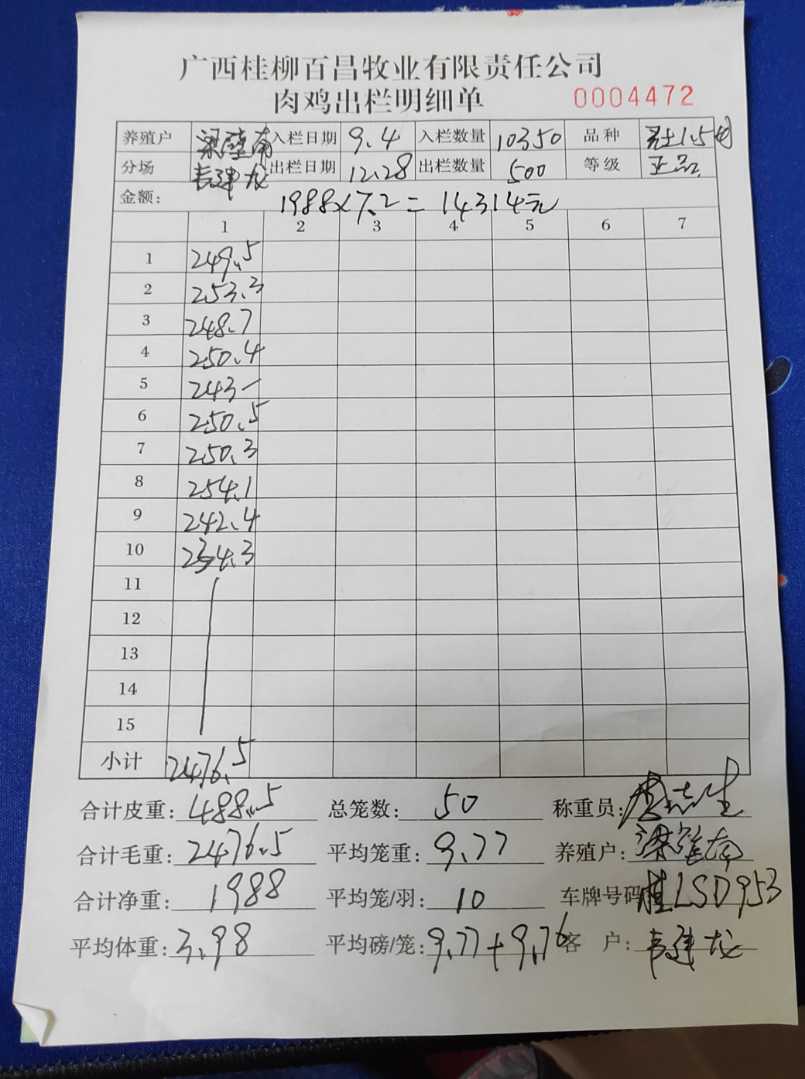 广西桂柳百昌牧业有限责任公司
肉鸡出栏明细单 0004472
养殖户 入栏日期 9.4 入栏数量 10350 品种
分场 韦建龙 出栏日期 12.28 出栏数量 500 等级 正品
金额: 1988×7.2=14314元
1 2 3 4 5 6 7
1 249.5
2 253.3
3 248.7
4 250.4
5 243-
6 250.5
7 250.3
8 254.1
9 242.4
10 234.3
11
12
13
14
15
小计 2476.5
合计皮重: 488.5 总笼数: 50 称重员:
合计毛重: 2476.5 平均笼重: 9.77 养殖户:
合计净重: 1988 平均笼/羽: 10 车牌号码 桂LSD953
平均体重: 3.98 平均磅/笼: 9.77+9.76 客户: 韦建龙